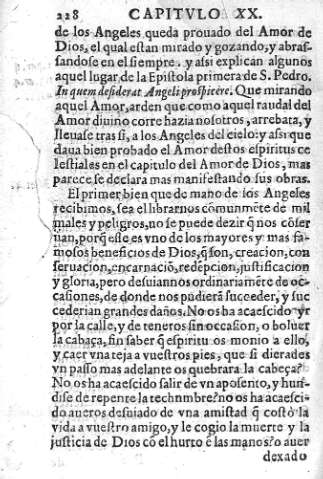 228 CAPITVLO XX.
de los Angeles queda prouado del Amor de
Dios, el qual estan mirado y gozando, y abras-
sandose en el siempre. y assi explican algunos
aquel lugar de la Epistola primera de S. Pedro.
In quem desiderãt Angeli prospicere. Que mirando
aquel Amor, arden que como aquel raudal del
Amor diuino corre hazia nosotros, arrebata, y
lleuase tras si, a los Angeles del cielo: y assi que
daua bien probado el Amor destos espiritus ce
lestiales en el capitulo del Amor de Dios, mas
parece se declara mas manifestando sus obras.
El primer bien que de mano de los Angeles
recibimos, sea el librarnos comunmẽte de mil
males y peligros, no se puede dezir q̃ nos cõser
uan, porq̃ este es vno de los mayores y mas fa-
mosos beneficios de Dios, q̃ son, creacion, con
seruacion, encarnaciõ, redẽpcion, justificacion
y gloria, pero desuiannos ordinariamẽte de oc-
casiones, de donde nos pudierã succeder, y suc
cederian grandes daños. No os ha acaescido yr
por la calle, y de teneros sin occasion, o boluer
la cabaça, sin saber q̃ espiritu os monio a ello,
y caer vna teja a vuestros pies, que si dierades
vn passo mas adelante os quebrara la cabeça?
No os ha acaescido salir de vn aposento, y hun-
dirse de repente la technmbre? no os ha acaesci-
do aueros desuiado de vna amistad q̃ costò la
vida a vuestro amigo, y le cogio la muerte y la
justicia de Dios cõ el hurto ẽ las manos? o auer
dexado